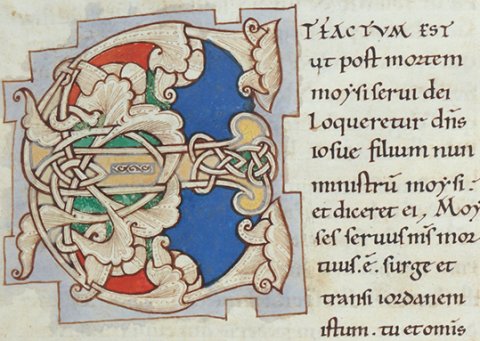 ET FACTUM EST
ut post mortem
moysi servi dei
loqueretur dn̄s
iosue filium nun
ministrū moysi·
et diceret ei, Moy
ses servus m̄s mor
tuus·ē· surge et
transi iordanem
istum· tu et omis